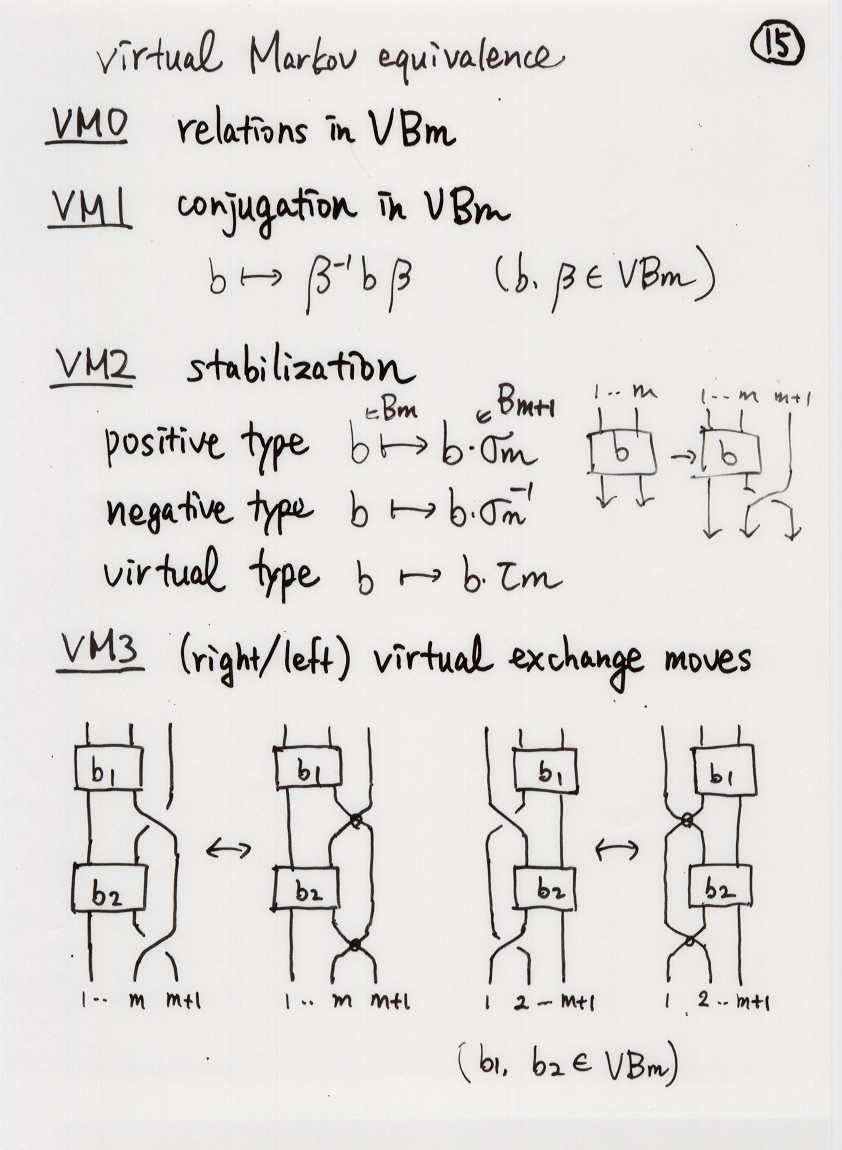 virtual Markov equivalence ⑮
VM0 relations in VBm
VM1 conjugation in VBm
b ↦ β⁻¹ b β (b, β ∈ VBm)
VM2 stabilization
∈Bm ∈Bm+1 1 ·· m 1 ·· m m+1
positive type b ↦ b·σm b → b
negative type b ↦ b·σm⁻¹
virtual type b ↦ b·τm
VM3 (right/left) virtual exchange moves
b1 b1 b1 b1
↔ ↔
b2 b2 b2 b2
1 ·· m m+1 1 ·· m m+1 1 2 -- m+1 1 2 ·· m+1
(b1, b2 ∈ VBm)